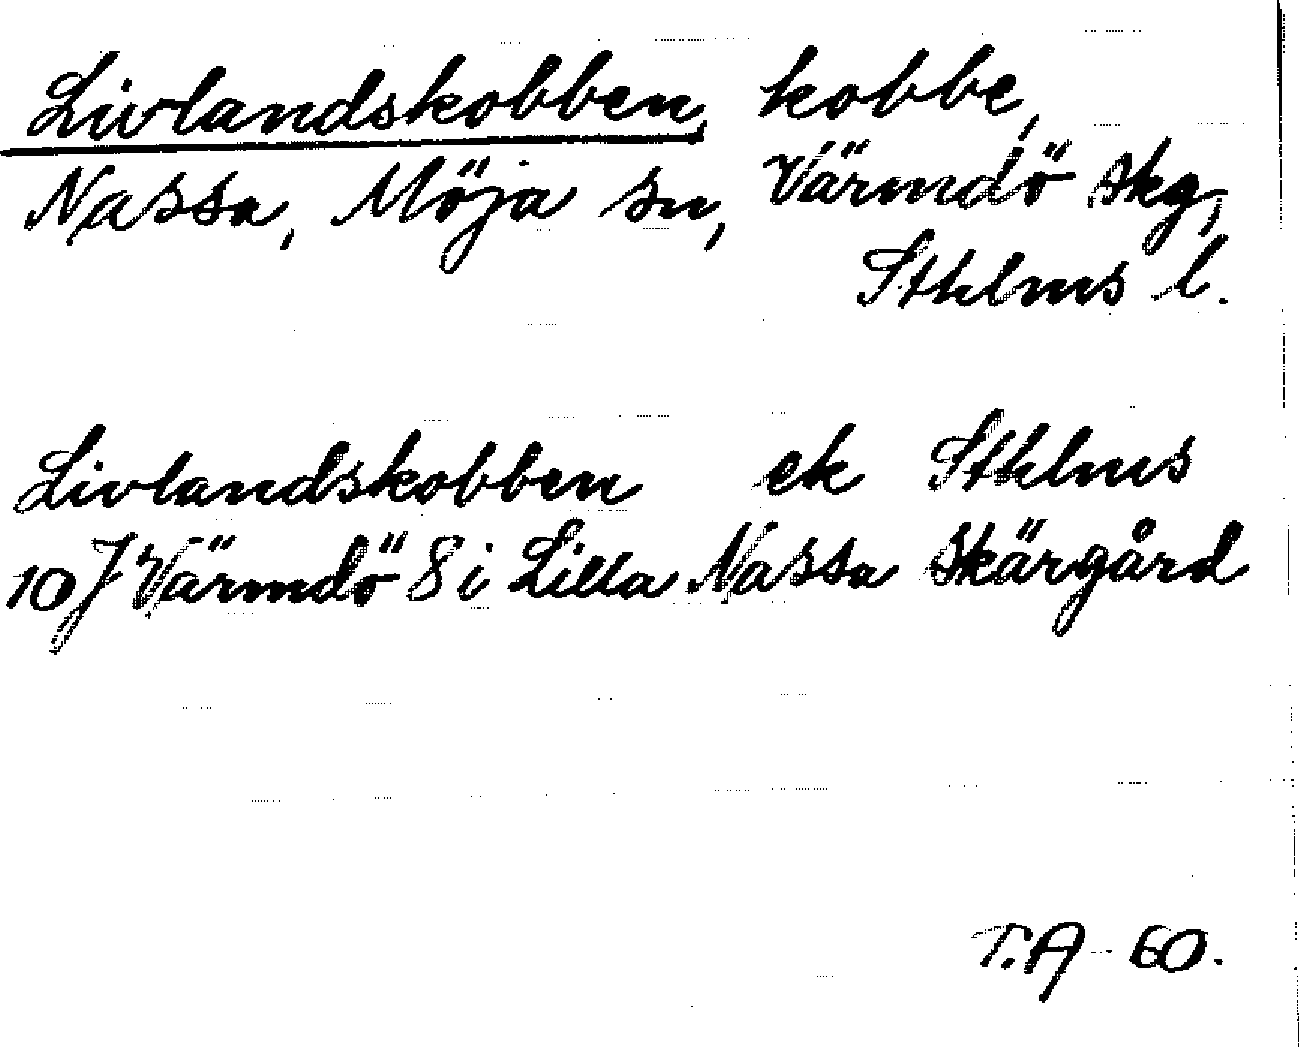 Livlandskobben, kobbe,
Nassa, Möja sn, Värmdö skg,
Sthlms l.
Livlandskobben ek Sthlms
10J Värmdö 8 i Lilla Nassa Skärgård
T.A - 60.